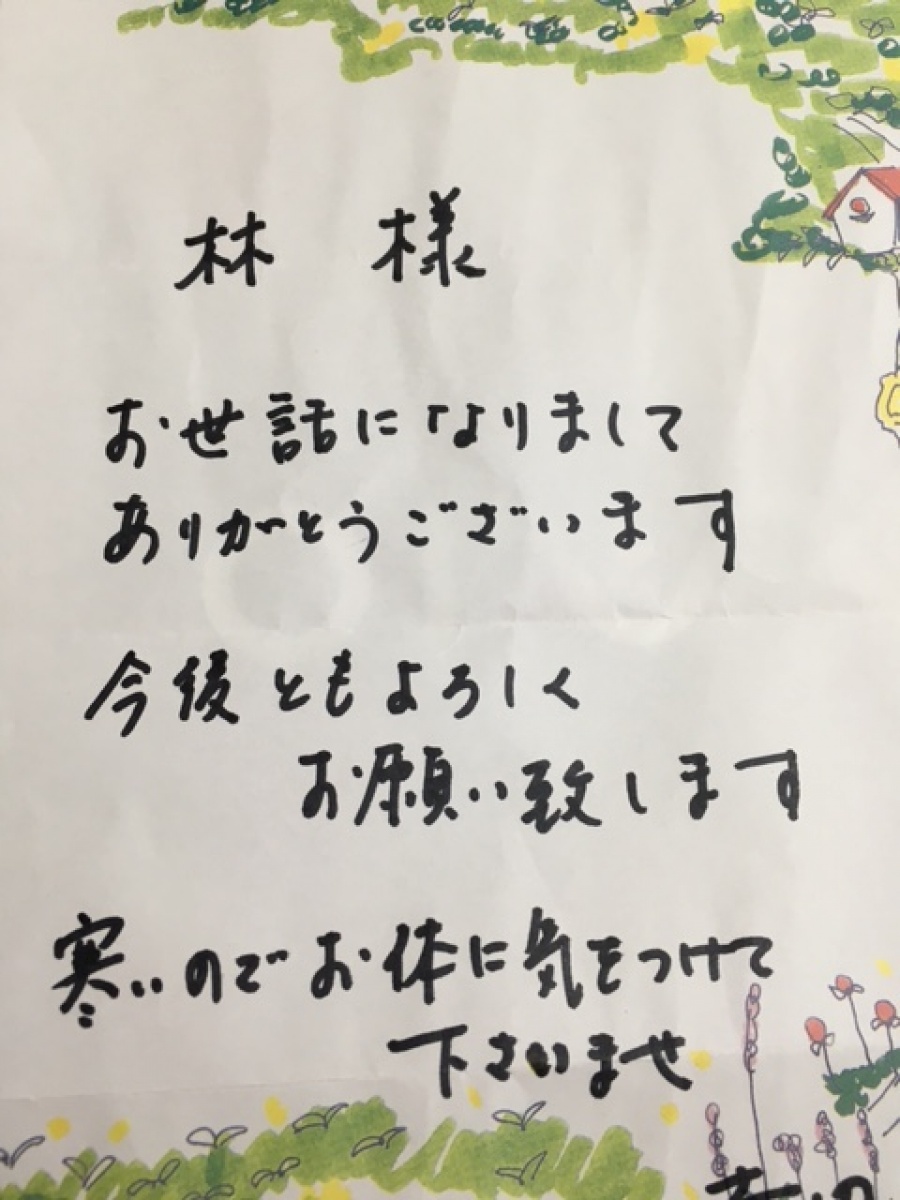 林 様
お世話になりまして
ありがとうございます
今後ともよろしく
お願い致します
寒いのでお体に気をつけて
下さいませ